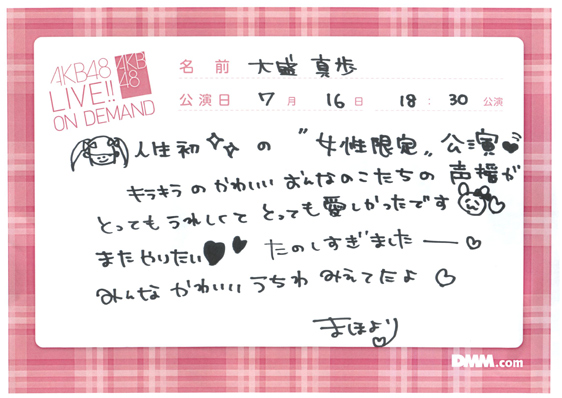 AKB48
LIVE!!
ON DEMAND
AKB
48
名前 大盛 真歩
公演日 7月 16日 18:30 公演
人生初の"女性限定"公演
キラキラのかわいいおんなのこたちの声援が
とってもうれしくてとっても愛しかったです
またやりたい たのしすぎましたー
みんなかわいいうちわみえてたよ
まほより
DMM.com